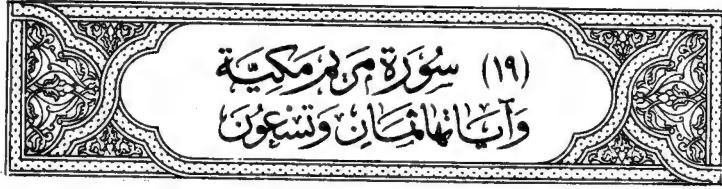 (١٩) سُورَة مَريَم مَكِيَّة
وَآيَاتها ثَمَان وَتِسْعُونَ